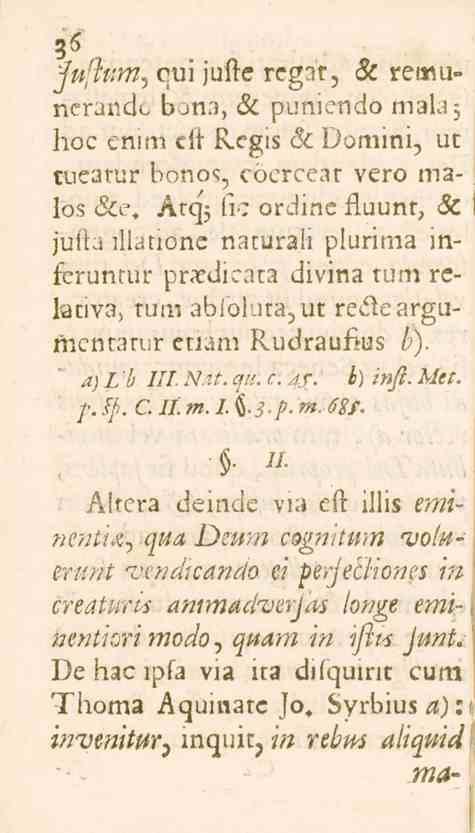 36
Juſtum, qui juſte regat, & remu-
nerando bona, & puniendo mala;
hoc enim eſt Regis & Domini, ut
tueatur bonos, coerceat vero ma-
los &c. Atq́; ſic ordine fluunt, &
juſta illatione naturali plurima in-
feruntur prædicata divina tum re-
lativa, tum abſoluta, ut recte argu-
mentatur etiam Rudrauffius b).
a) Lib III. Nat. qu. c. 45. b) inſt. Met.
p. ſp. C. II. m. I. §. 3. p. m. 685.
§. II.
Altera deinde via eſt illis emi-
nentiæ, qua Deum cognitum volu-
erunt vendicando ei perfectiones in
creaturis animadverſas longe emi-
nentiori modo, quam in iſtis ſunt.
De hac ipſa via ita diſquirit cum
Thoma Aquinate Jo. Syrbius a):
invenitur, inquit, in rebus aliquid
ma-